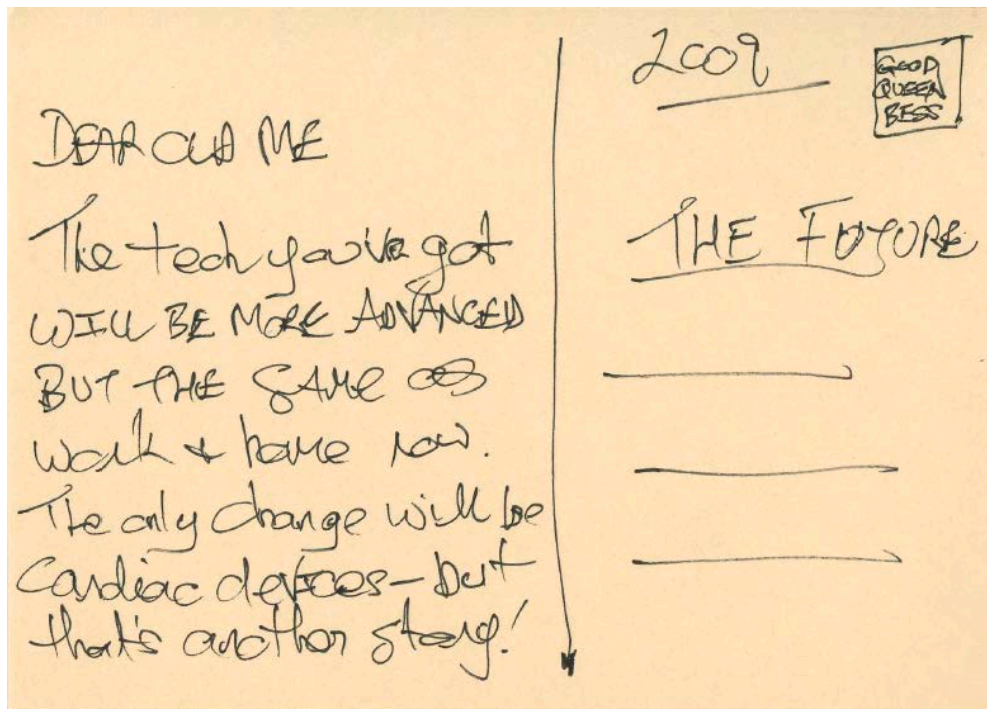 DEAR OLD ME
The tech you've got
WILL BE MORE ADVANCED
BUT THE SAME AS
work & home now.
The only change will be
Cardiac devices – but
that's another story!
2009
GOOD
QUEEN
BESS
THE FUTURE